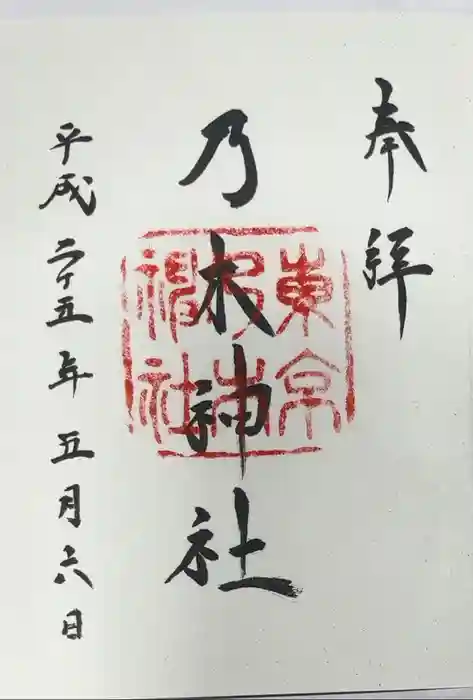 奉拝
乃木神社
東京乃木神社
平成二十五年五月六日